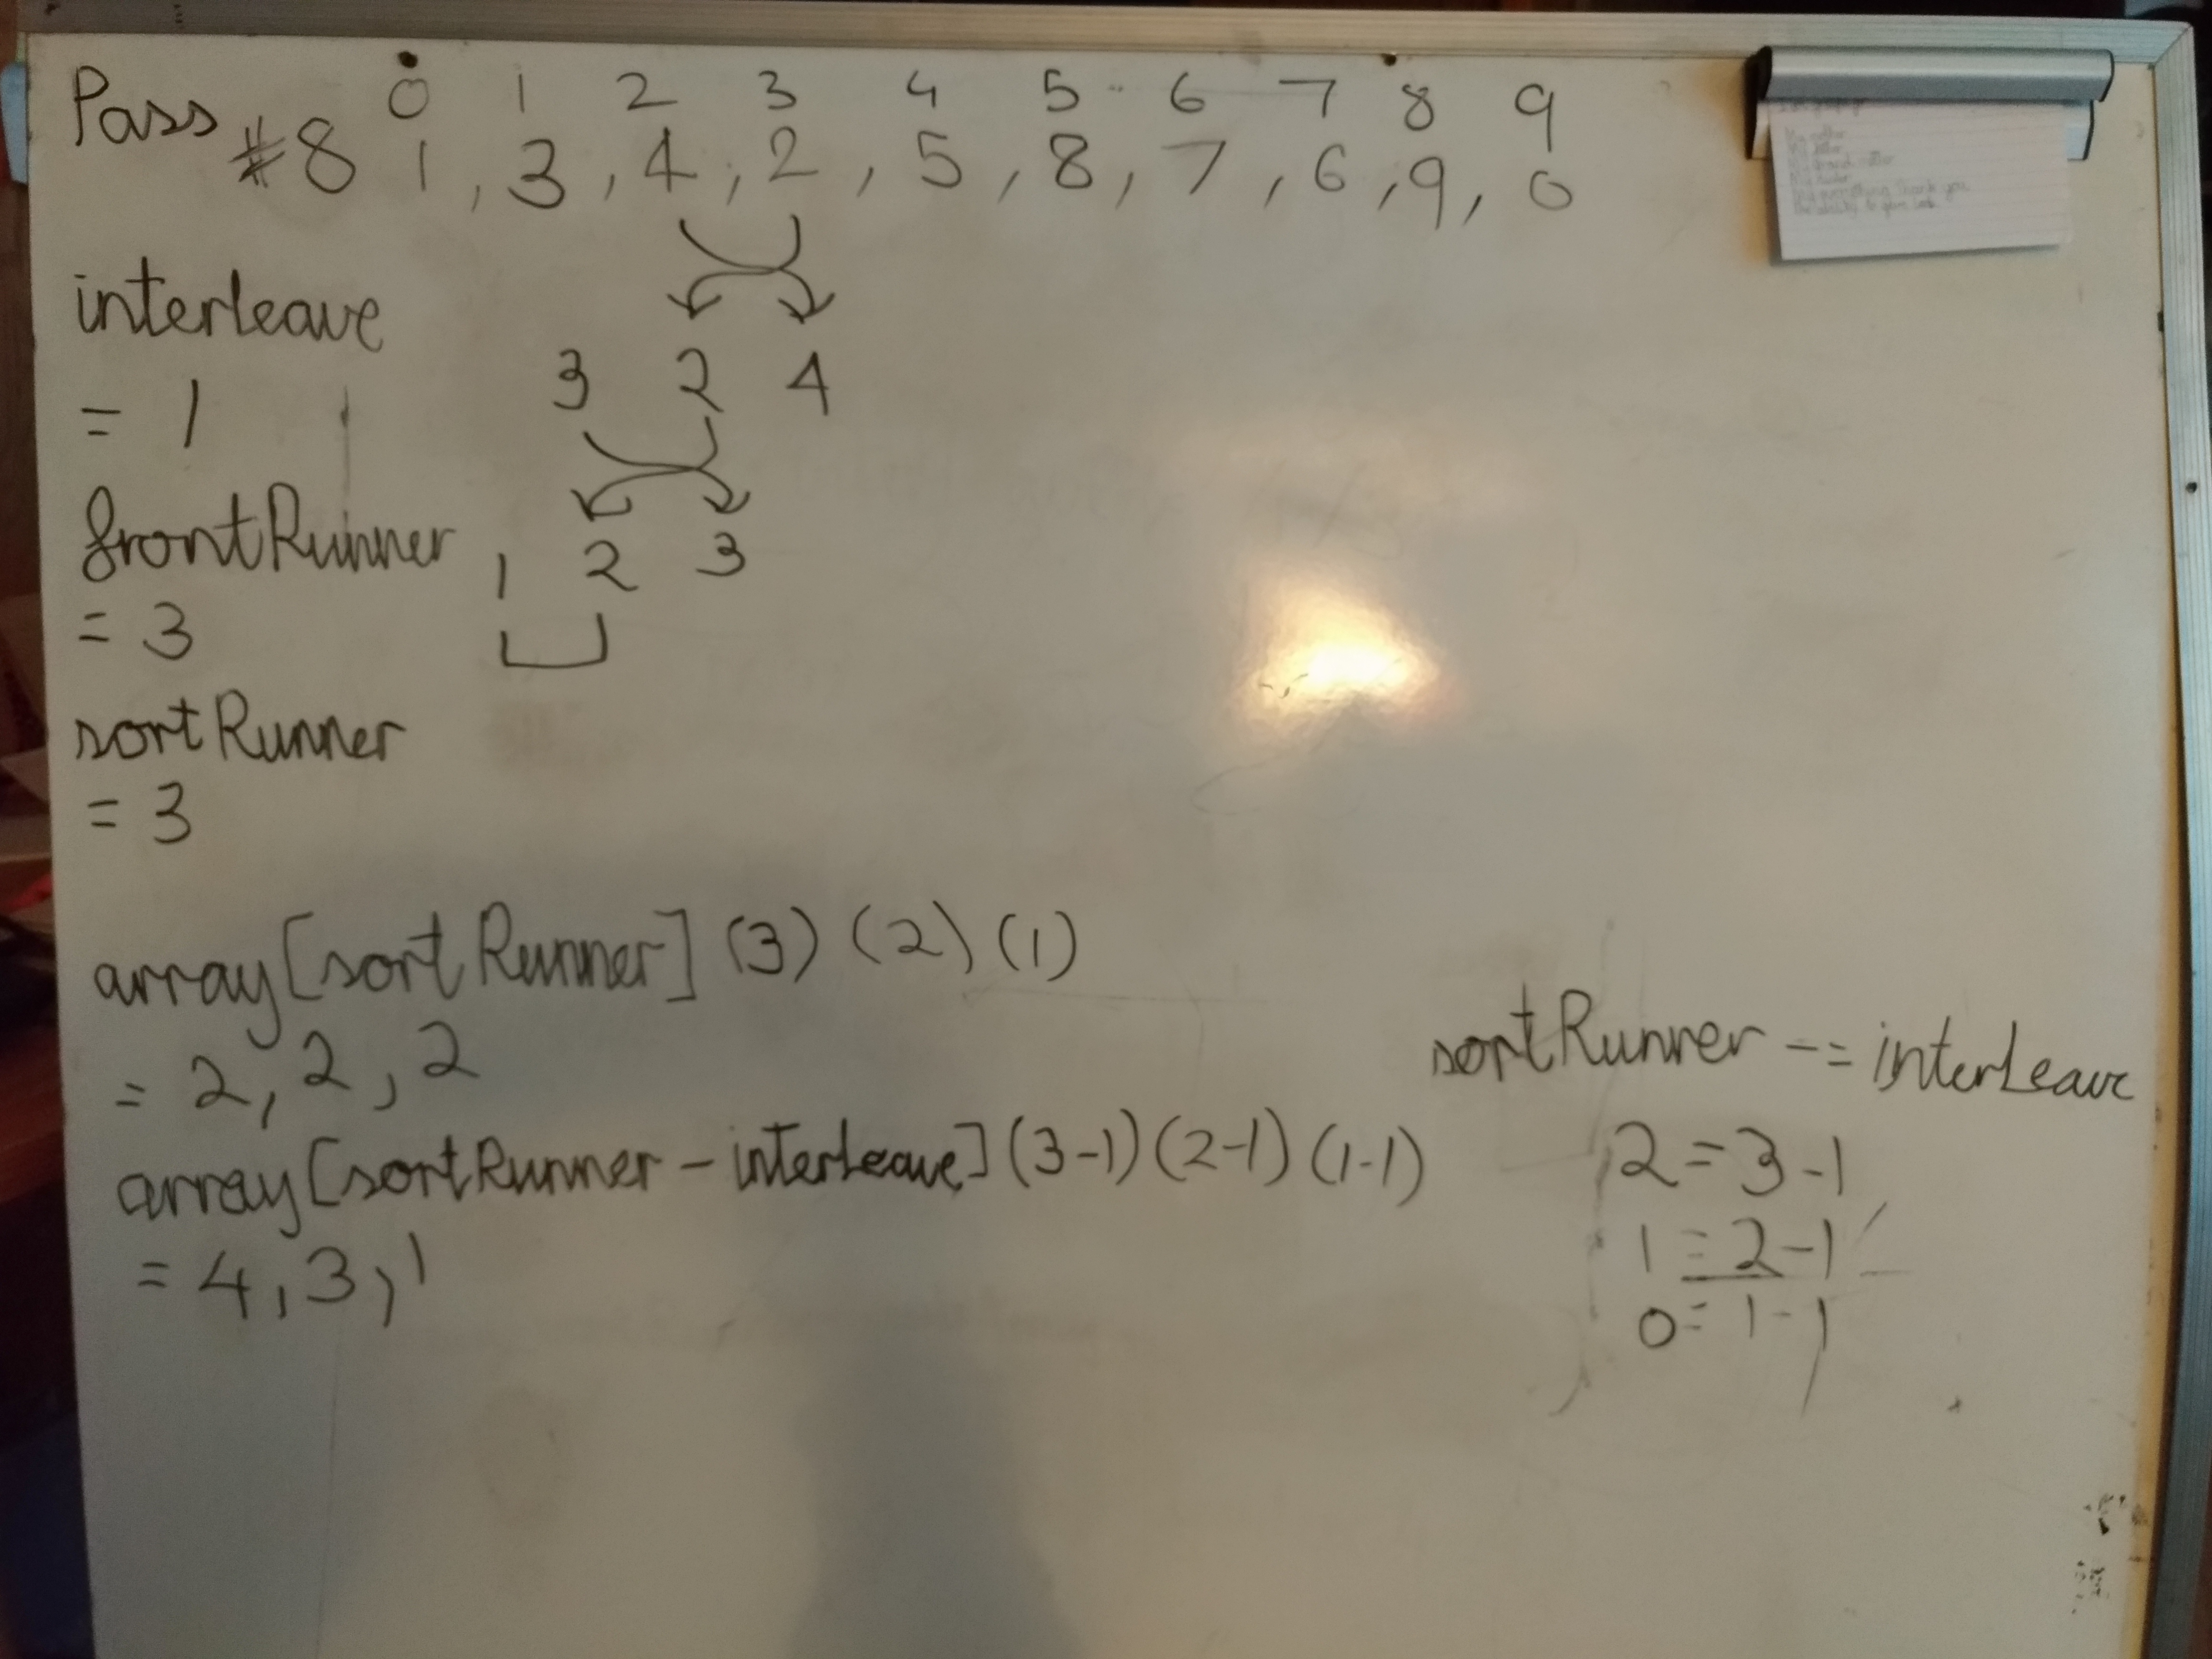 Pass 0 1 2 3 4 5 6 7 8 9
#8 1, 3, 4, 2, 5, 8, 7, 6, 9, 0
interleave
= 1
3 2 4
frontRunner
= 3
1 2 3
sortRunner
= 3
array[sortRunner] (3) (2) (1)
= 2, 2, 2
array[sortRunner - interleave] (3-1) (2-1) (1-1)
= 4, 3, 1
sortRunner -= interleave
2 = 3 - 1
1 = 2 - 1
0 = 1 - 1